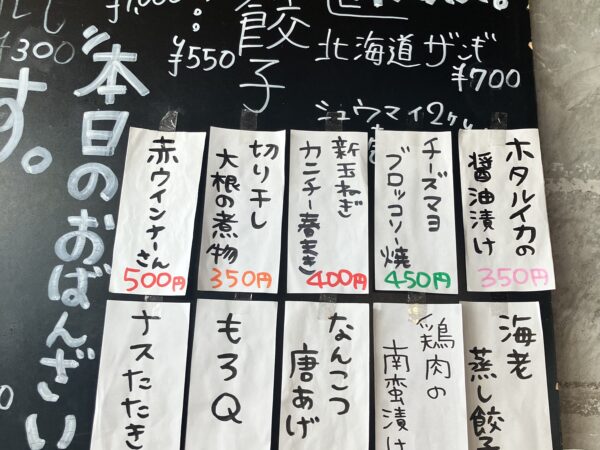 餃子
¥550
北海道ザンギ
¥700
シュウマイ2ヶ
¥300
す。
"本日のおばんざい
ホタルイカの
醤油漬け
350円
チーズマヨ
ブロッコリー焼
450円
新玉ねぎ
カニチー春まき
400円
切り干し
大根の煮物
350円
赤ウインナーさん
500円
海老
蒸し餃子
鶏肉の
南蛮漬け
なんこつ
唐あげ
もろQ
ナスたたき